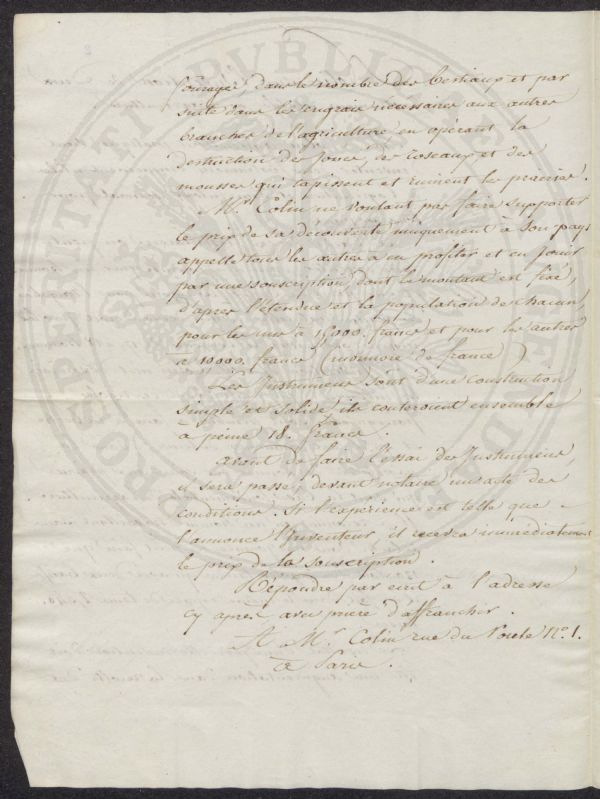 fourages, dans le nombre des bestiaux et par
suite dans les engrais nécessaires aux autres
branches de l'agriculture en opérant la
destruction des joncs, des roseaux et des
mousses qui tapissent et ruinent les prairies.
Mr. Colin ne voulant pas faire supporter
le prix de sa découverte uniquement à son pays
appelle tous les autres à en profiter et en jouir
par une souscription, dont le montant est fixé,
d'après l'étendue et la population de chacun,
pour les uns à 15000. francs et pour les autres
à 10000. francs (monnoie de france)
Les Instrumens sont d'une construction
simple et solide, ils couteroient ensemble
à peine 18. francs.
avant de faire l'essai des Instrumens,
il sera passé, devant notaire un acte des
conditions. Si l'expérience est telle que
l'annonce l'Inventeur, il recevra immédiatement
le prix de la souscription.
Répondre par ecrit à l'adresse
cy après avec prière d'affranchir.
A Mr. Colin rue du No. 1.
à Paris.
PROSPERITATI PUBLICAE AUGENDAE